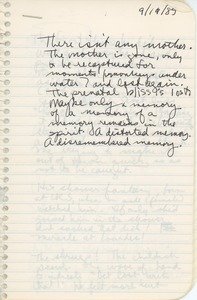 9/19/85
There isn't any mother.
The mother is gone, only
to be recaptured for
moments under
water? and lost again.
The prenatal bliss is lost
Maybe only a memory
of a memory of a
memory remains in the
spirit. A distorted memory.
A disremembered memory.